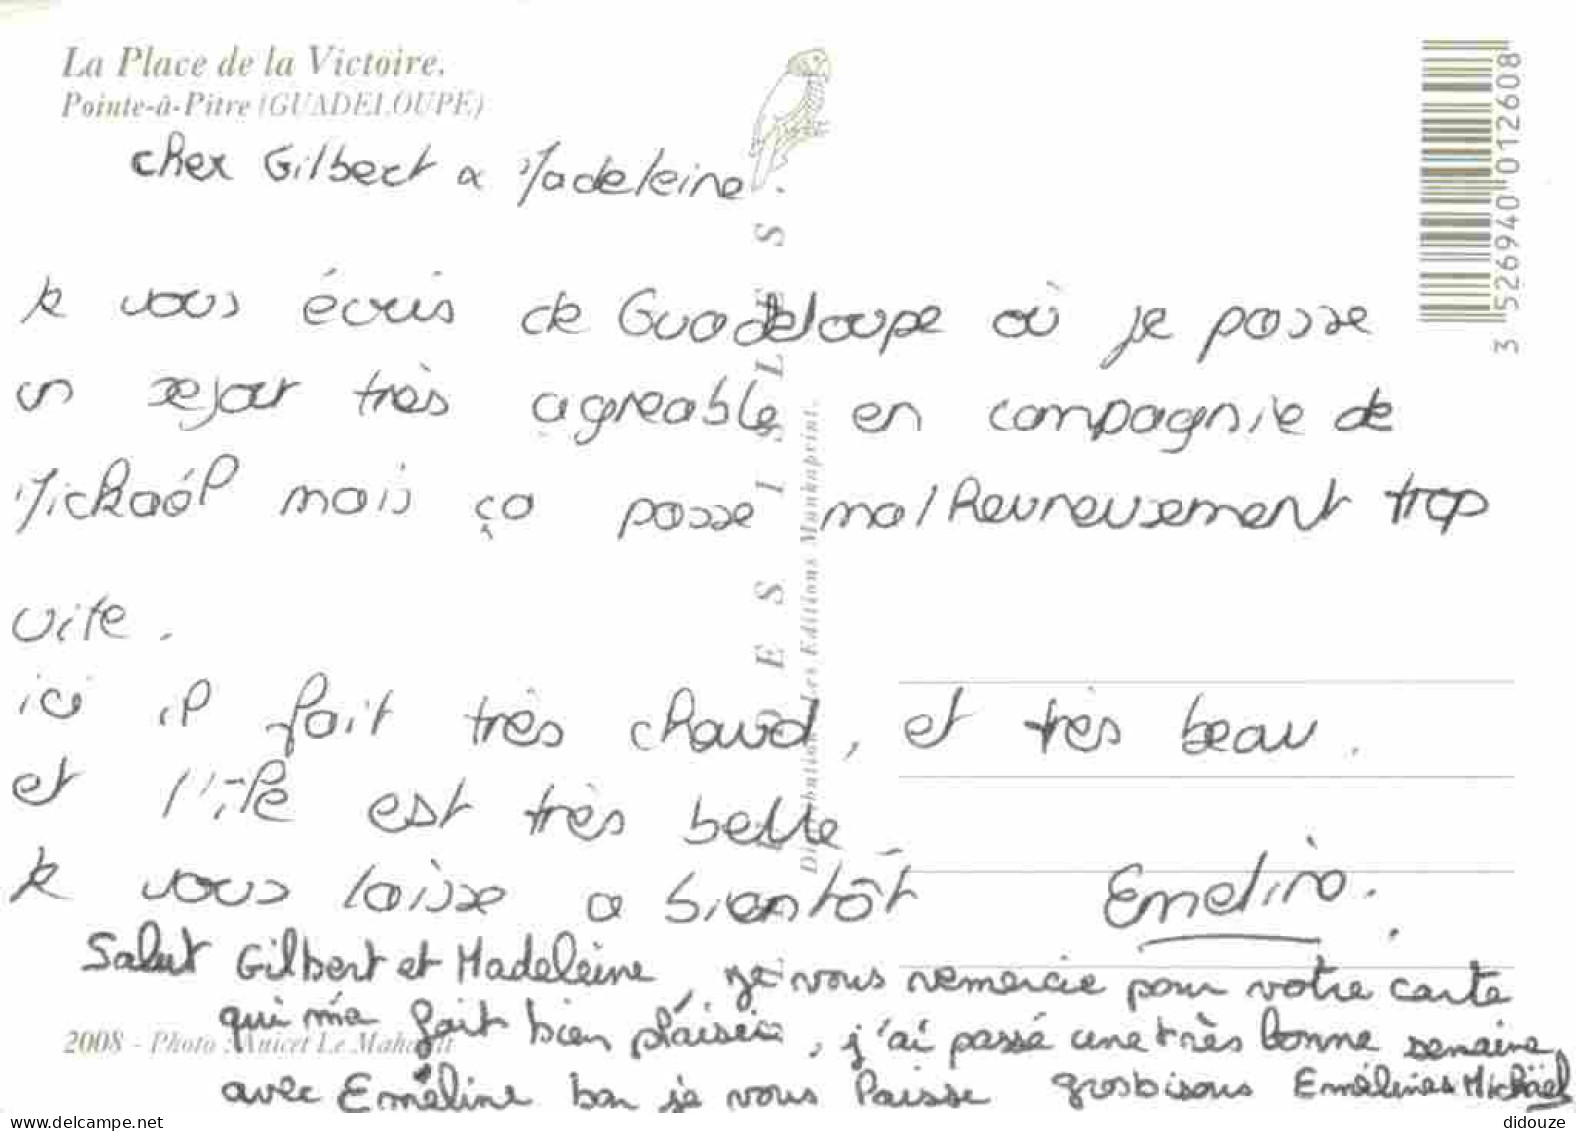 La Place de la Victoire.
Pointe-à-Pitre (GUADELOUPE)
3 526940 012608
cher Gilbert & Madeleine.
Je vous écris de Guadeloupe où je passe
un sejour très agreable en compagnie de
Mickaël mais ça passe malheureusement trop
vite.
ici il fait très chaud, et très beau.
et l'île est très belle
Je vous laisse a bientôt
Emeline.
Salut Gilbert et Madeleine, je vous remercie pour votre carte
qui m'a fait bien plaisir, j'ai passé une très bonne semaine
avec Eméline bon je vous laisse grosbisous Emeline Mickäel
DES ISLES
Distribution Les Editions Munkaprint.
2008 - Photo Anicet Le Mahault
delcampe.net
didouze